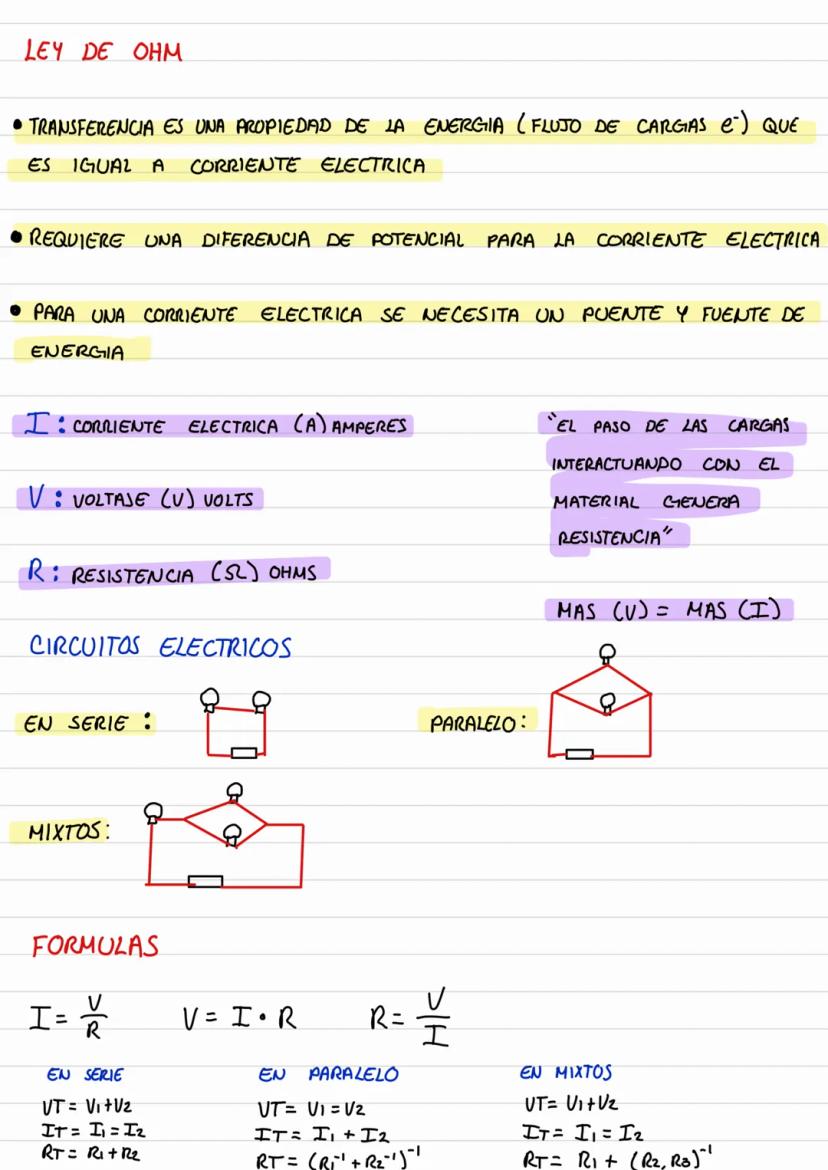 LEY DE OHM
• TRANSFERENCIA ES UNA PROPIEDAD DE LA ENERGIA (FLUJO DE CARGAS e⁻) QUE
ES IGUAL A CORRIENTE ELECTRICA
• REQUIERE UNA DIFERENCIA DE POTENCIAL PARA LA CORRIENTE ELECTRICA
• PARA UNA CORRIENTE ELECTRICA SE NECESITA UN PUENTE Y FUENTE DE
ENERGIA
I: CORRIENTE ELECTRICA (A) AMPERES
V: VOLTAJE (V) VOLTS
R: RESISTENCIA (Ω) OHMS
"EL PASO DE LAS CARGAS
INTERACTUANDO CON EL
MATERIAL GENERA
RESISTENCIA"
MAS (V) = MAS (I)
CIRCUITOS ELECTRICOS
EN SERIE:
PARALELO:
MIXTOS:
FORMULAS
I = V/R
V = I • R
R = V/I
EN SERIE
VT = V1+V2
IT = I1 = I2
RT = R1+R2
EN PARALELO
VT = V1 = V2
IT = I1 + I2
RT = (R1⁻¹ + R2⁻¹)⁻¹
EN MIXTOS
VT = V1+V2
IT = I1 = I2
RT = R1 + (R2, R3)⁻¹